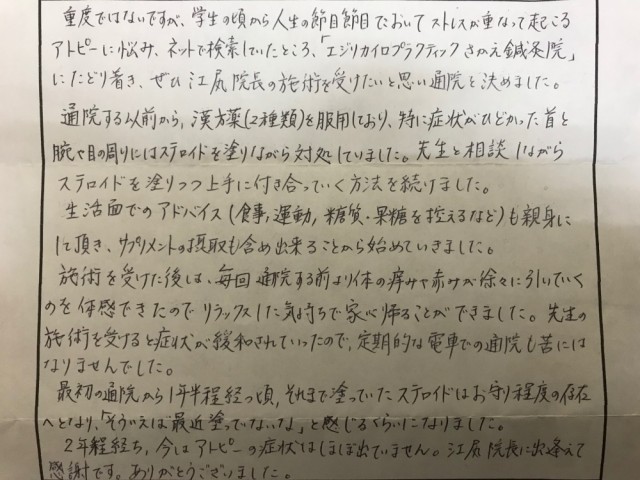 重度ではないですが、学生の頃から人生の節目節目でおいてストレスが重なって起こる
アトピーに悩み、ネットで検索していたところ、「エジリカイロプラクティックさかえ鍼灸院」
にたどり着き、ぜひ江尻院長の施術を受けたいと思い通院を決めました。
通院する以前から、漢方薬(2種類)を服用しており、特に症状がひどかった首と
腕や目の周りにはステロイドを塗りながら対処していました。先生と相談しながら
ステロイドを塗りつつ上手に付き合っていく方法を続けました。
生活面でのアドバイス(食事,運動,糖質・果糖を控えるなど)も親身に
して頂き、サプリメントの摂取も含め出来ることから始めていきました。
施術を受けた後は、毎回通院する前より体の痒みや赤みが徐々に引いていく
のを体感できたのでリラックスした気持ちで家に帰ることができました。先生の
施術を受けると症状が緩和されていったので、定期的な電車での通院も苦には
なりませんでした。
最初の通院から1年半程経つ頃,それまで塗っていたステロイドはお守り程度の存在
へとなり、「そういえば最近塗っていないな」と感じるくらいになりました。
2年程経ち,今はアトピーの症状はほぼ出ていません。江尻院長に出逢えて
感謝です。ありがとうございました。